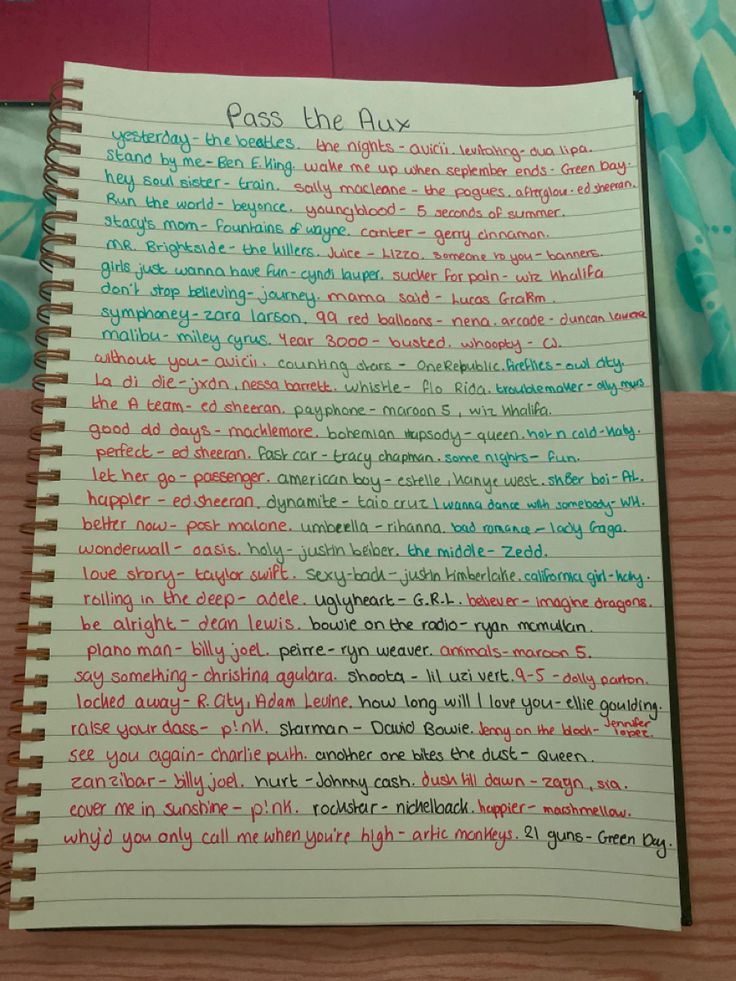 Pass the Aux
yesterday - the beatles. the nights - avicii. levitating - dua lipa.
stand by me - Ben E.King. wake me up when september ends - Green Day.
hey soul sister - train. sally macleane - the pogues. afterglow - ed sheeran.
Run the world - beyonce. youngblood - 5 seconds of summer.
stacy's mom - fountains of wayne. canter - gerry cinnamon.
MR. Brightside - the killers. Juice - Lizzo. someone to you - banners.
girls just wanna have fun - cyndi lauper. sucker for pain - wiz khalifa
don't stop believing - journey. mama said - Lucas Graham.
symphoney - zara larson. 99 red balloons - nena. arcade - duncan lawrence
malibu - miley cyrus. Year 3000 - busted. whoopty - CJ.
without you - avicii. counting stars - OneRepublic. fireflies - owl city.
la di die - jxdn, nessa barrett. whistle - flo Rida. troublemaker - olly murs
the A team - ed sheeran. payphone - maroon 5, wiz khalifa.
good old days - macklemore. bohemian rapsody - queen. hot n cold - katy.
perfect - ed sheeran. fast car - tracy chapman. some nights - fun.
let her go - passenger. american boy - estelle, kanye west. sk8er boi - AL.
happier - ed sheeran. dynamite - taio cruz I wanna dance with somebody - WH.
better now - post malone. umbrella - rihanna. bad romance - lady Gaga.
wonderwall - oasis. holy - justin beiber. the middle - Zedd.
love story - taylor swift. sexy-back - justin timberlake. california girl - katy.
rolling in the deep - adele. uglyheart - G.R.L. believer - imagine dragons.
be alright - dean lewis. bowie on the radio - ryan mcmullan.
piano man - billy joel. peirre - ryn weaver. animals - maroon 5.
say something - christina agulara. shoota - lil uzi vert. 9-5 - dolly parton.
locked away - R. City, Adam Levine. how long will I love you - ellie goulding.
raise your dass - p!nk. starman - David Bowie. Jenny on the block - Jennifer lopez.
see you again - charlie puth. another one bites the dust - Queen.
zanzibar - billy joel. hurt - Johnny cash. dusk till dawn - zayn, sia.
cover me in sunshine - p!nk. rockstar - nickelback. happier - marshmellow.
why'd you only call me when you're high - artic monkeys. 21 guns - Green Day.